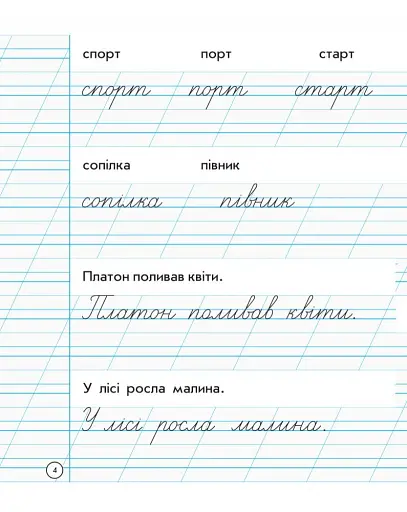 спорт порт старт
спорт порт старт
сопілка півник
сопілка півник
Платон поливав квіти.
Платон поливав квіти.
У лісі росла малина.
У лісі росла малина.
4